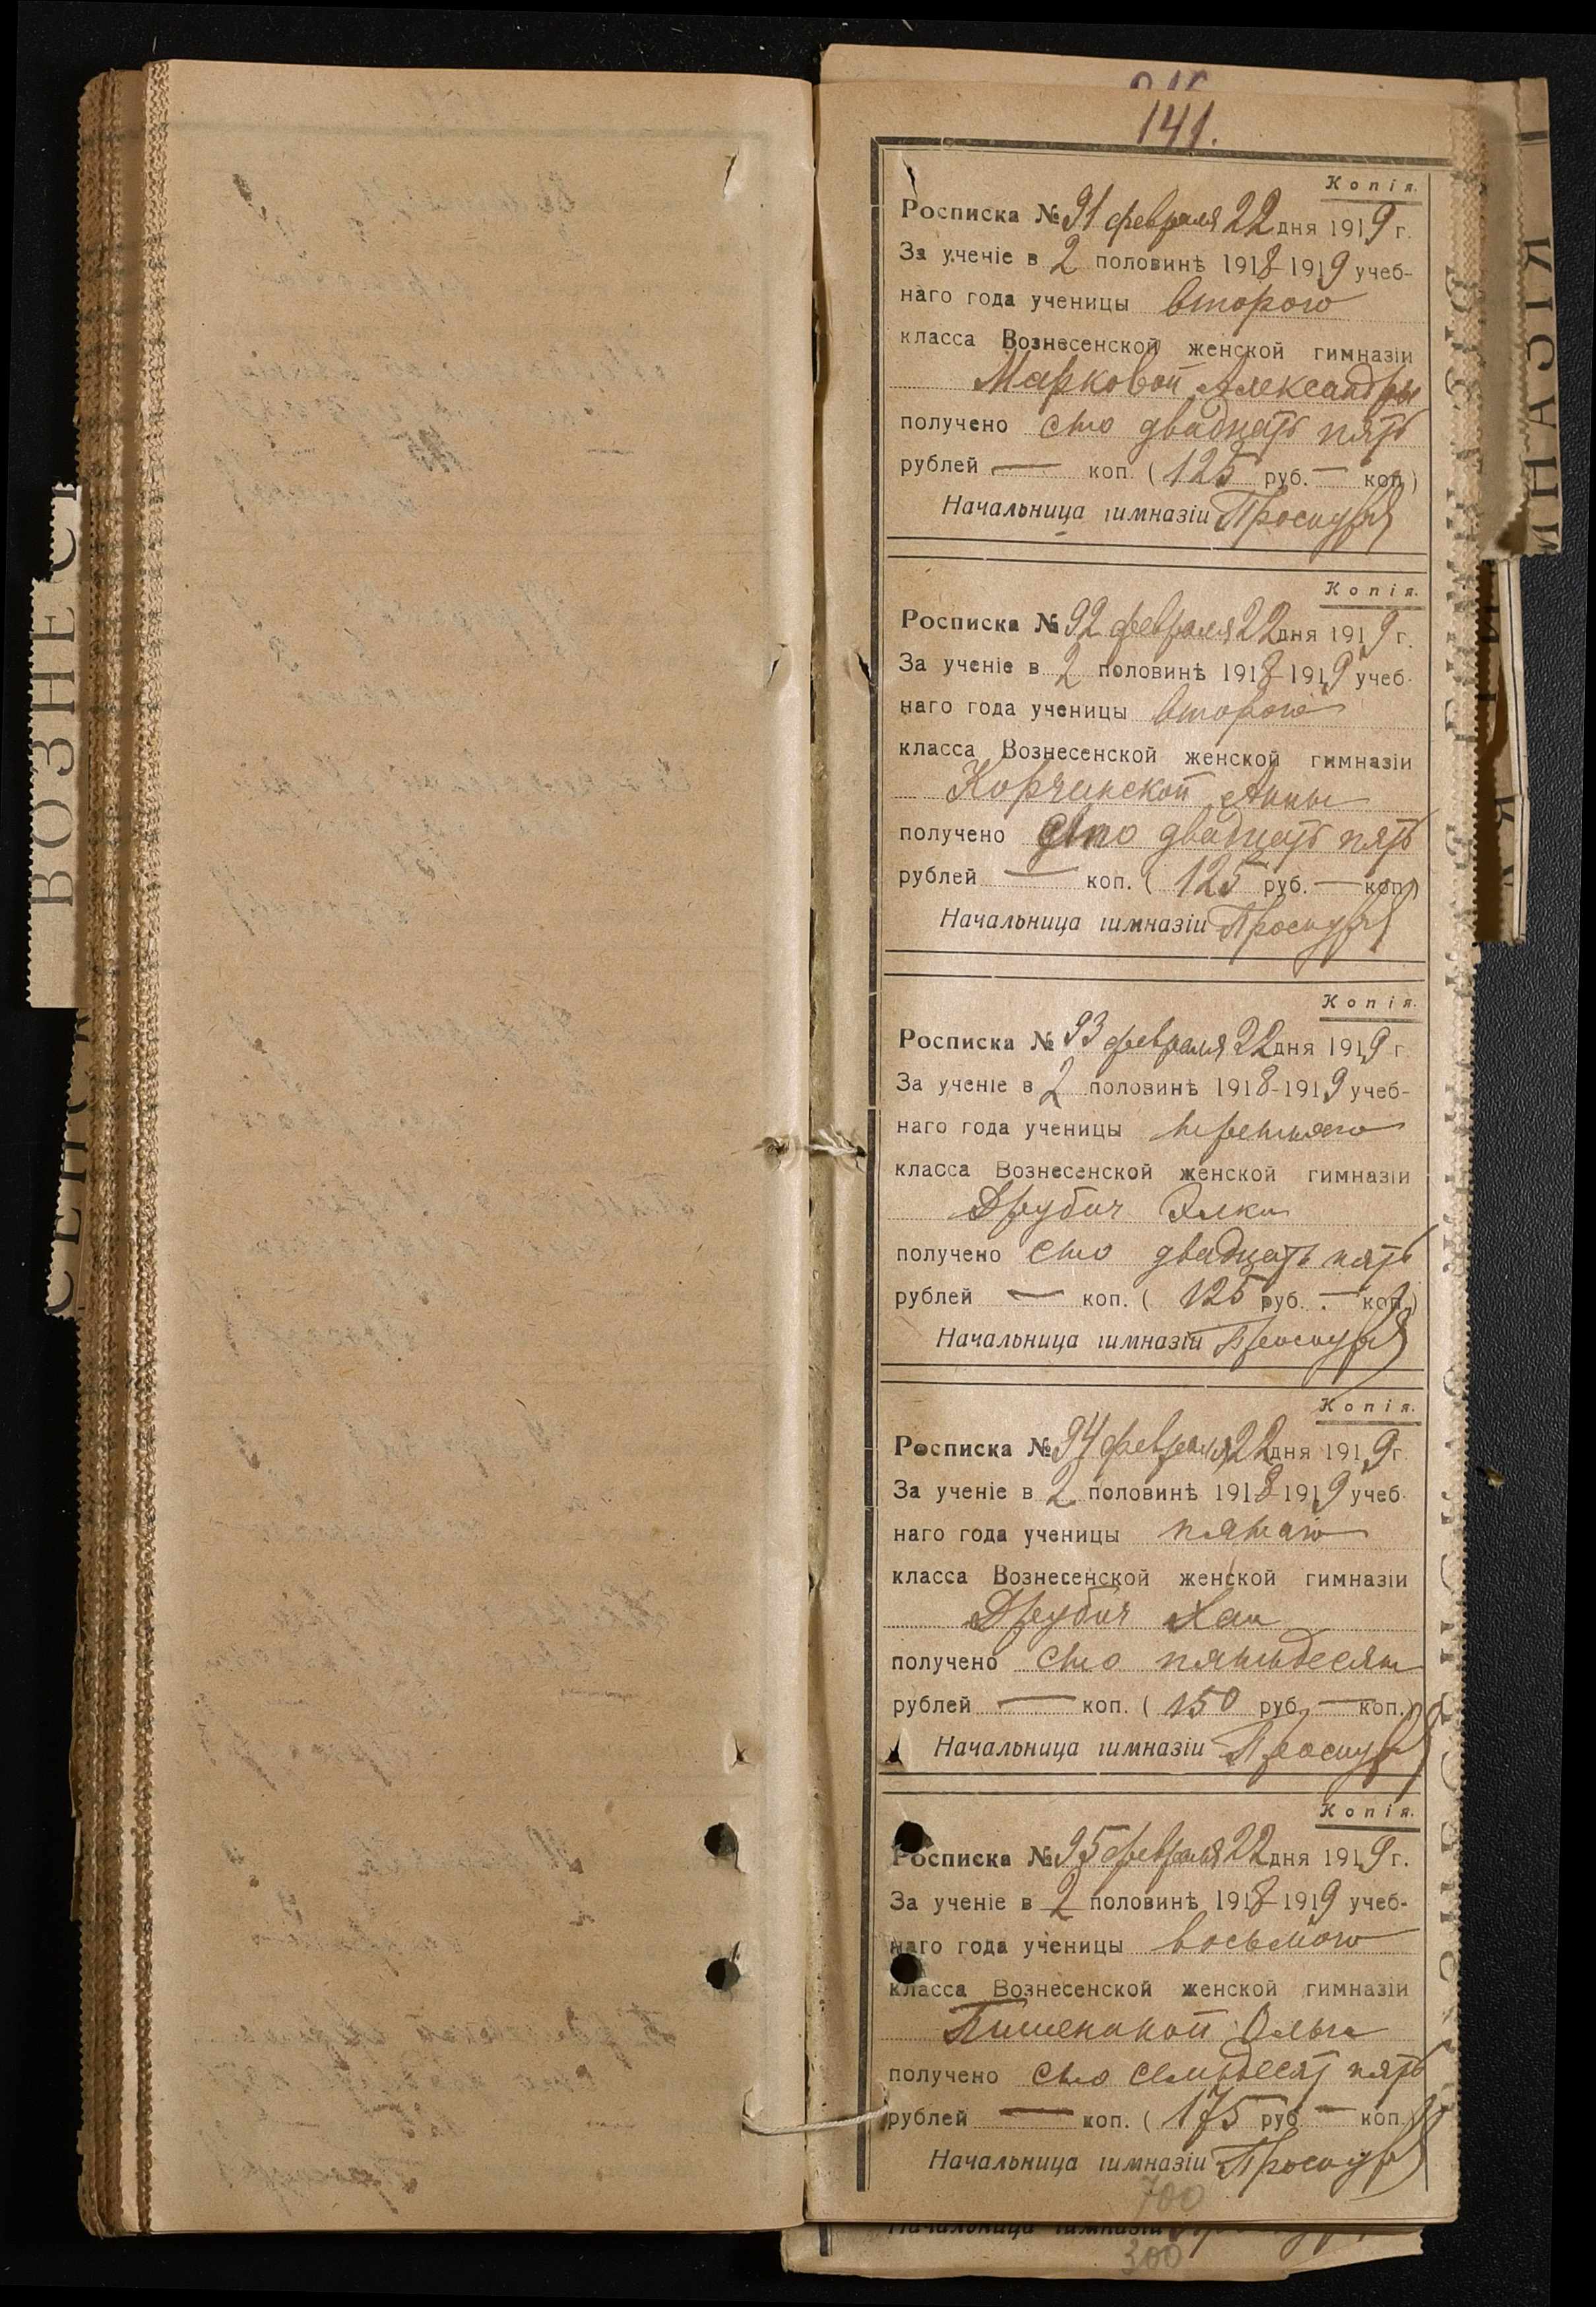 141.
Копія.
Росписка № 91 февраля 22 дня 1919 г.
За ученіе в 2 половинѣ 1918-1919 учеб-
наго года ученицы второго
класса Вознесенской женской гимназіи
Марковой Александры
получено сто двадцать пять
рублей — коп. (125 руб. — коп.)
Начальница гимназіи
Копія.
Росписка № 92 февраля 22 дня 1919 г.
За ученіе в 2 половинѣ 1918-1919 учеб-
наго года ученицы второго
класса Вознесенской женской гимназіи
Корчинской Анны
получено сто двадцать пять
рублей — коп. (125 руб. — коп.)
Начальница гимназіи
Копія.
Росписка № 93 февраля 22 дня 1919 г.
За ученіе в 2 половинѣ 1918-1919 учеб-
наго года ученицы третьяго
класса Вознесенской женской гимназіи
Друбич Элки
получено сто двадцать пять
рублей — коп. (125 руб. — коп.)
Начальница гимназіи
Копія.
Росписка № 94 февраля 22 дня 1919 г.
За ученіе в 2 половинѣ 1918-1919 учеб-
наго года ученицы пятаго
класса Вознесенской женской гимназіи
Друбич Хаи
получено сто пятьдесят
рублей — коп. (150 руб. — коп.)
Начальница гимназіи
Копія.
Росписка № 95 февраля 22 дня 1919 г.
За ученіе в 2 половинѣ 1918-1919 учеб-
наго года ученицы восьмого
класса Вознесенской женской гимназіи
Ольги
получено сто семьдесят пять
рублей — коп. (175 руб. — коп.)
Начальница гимназіи
700
Начальница гимназіи
300